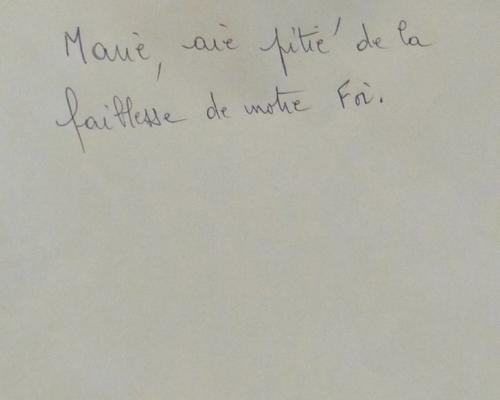 Marie, aie pitié de la
faiblesse de notre Foi.